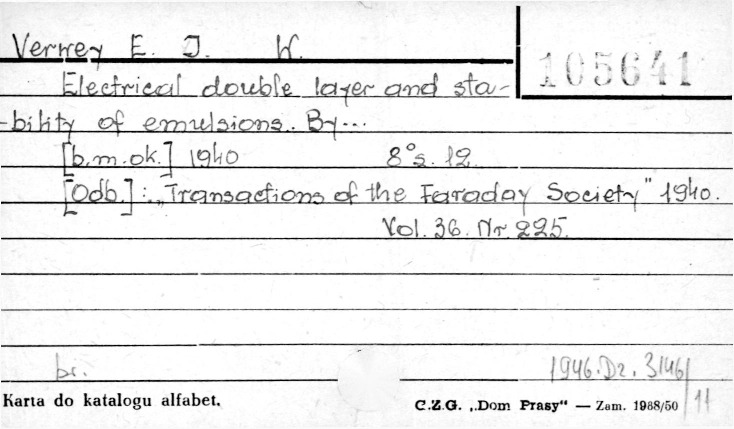 Verwey E. J. W.
105641
Electrical double layer and sta-
-bility of emulsions. By...
[b.m.ok.] 1940 8° s. 12.
[Odb.]: „Transactions of the Faraday Society" 1940.
Vol. 36. Nr 225.
br.
1946.Dz. 3146/
11
Karta do katalogu alfabet.
C.Z.G. „Dom Prasy" — Zam. 1968/50